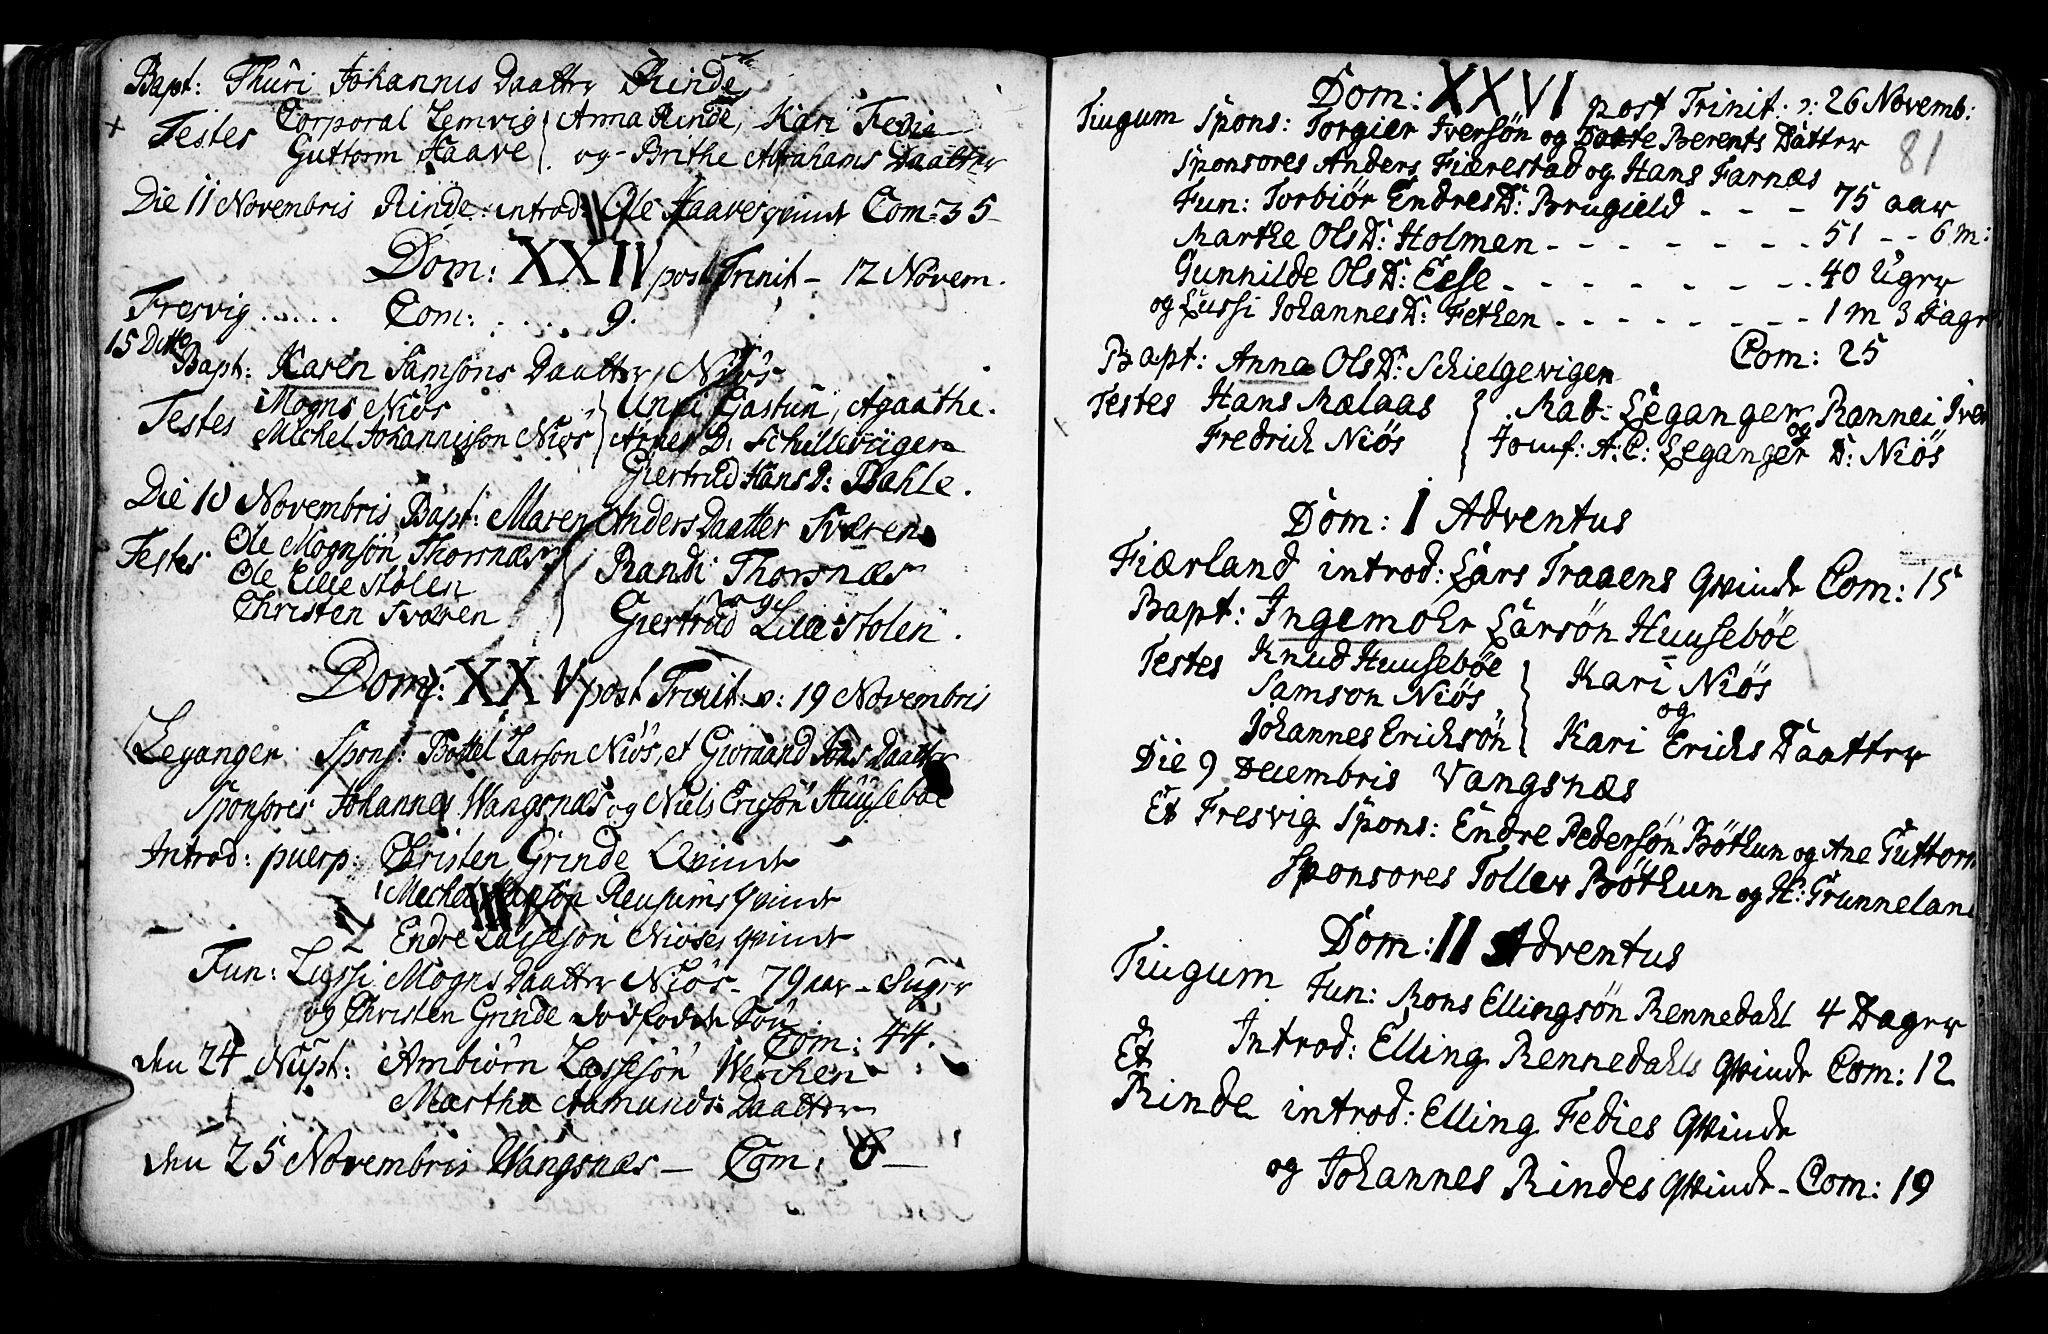 Bapt: Thuri Johannis Daatter Rinde
+ Testes Corporal Lemvig Anna Rinde, Kari Fedie
Guttorm Haave og Brithe Abrahams Daatter
Die 11 Novembris Rinde: introd: Ole Haaves qvinde Com: 35
Dom: XXIV post Trinit - 12 Novem.
Fresvig ..... Com: ..... 9.
15 Ditto
Bapt: Karen Samsons Daatter Niøs
Testes Mogns Niøs
Michel Johannisson Niøs
Unni Gastun, Agaathe
Arnes D: Schillevigen
Giertrud Hans D: Dahle.
Die 18 Novembris Bapt: Maren Anders Daatter Sværen
Testes Ole Mognsøn Thorsnæs
Ole Lille Stølen
Christen Sværen
Randi Thorsnæs
Giertrud Lille Stølen.
Dom: XXV post Trinit: ɔ: 19 Novembris
Leganger Spons: Bottel Larson Niøs, et Giøraand Jons Daatter
Sponsores Johannes Wangsnæs og Niels Ericsøn Huusebøe
Introd: puerp: Christen Grinde Qvinde
Michel Hanson Reusums qvinde
Endre Lassesøn Niøses qvinde
Fun: Lussi Mogns Daatter Niøs - 79 aar - 5 uger
og Christen Grinde dødfødde Søn.
Com: 44.
den 24 Nupt: Ambiørn Lassesøn Werchen
Martha Aamunds Daatter
den 25 Novembris Wangsnæs - Com: 8 -
Dom: XXVI post Trinit. ɔ: 26 Novemb:
81
Tiugum Spons: Torgier Iversøn og Dorte Berents Datter
Sponsores Anders Fiærestad og Hans Farnæs
Fun: Torbiør Endres D: Brugield - - - 75 aar
Marthe Ols D: Holmen - - - - - - - 51 - - 6 m:
Gunnilde Ols D: Eese - - - - - - - 40 Uger
og Lussi Johannes D: Fethen - - - - - - - 1 m 3 Dagr
Com: 25
Bapt: Anna Ols D: Schielgevigen
Testes Hans Mælaas Mad: Leganger, Rannei Iver
Fredrich Niøs og Jomf: A: C: Leganger D: Niøs
Dom: I Adventus
Fiærland introd: Lars Traaens Qvinde Com: 15
Bapt: Ingemohr Larsøn Huusebøe
Testes Knud Huusebøe Kari Niøs
Samson Niøs, og
Johannes Erichsøn Kari Erichs Daatter
Die 9 Decembris Vangsnæs
Et Fresvig Spons: Endre Pedersøn Bøthun og Ane Guttorm
Sponsores Toller Bøthun og H: Grunneland
Dom: II Adventus
Tiugum Fun: Mons Ellingsøn Rennedahl 4 Dager
Introd: Elling Rennedahls Qvinde Com: 12
Et
Rinde introd: Elling Fedies Qvinde
og Johannes Rindes Qvinde - Com: 19